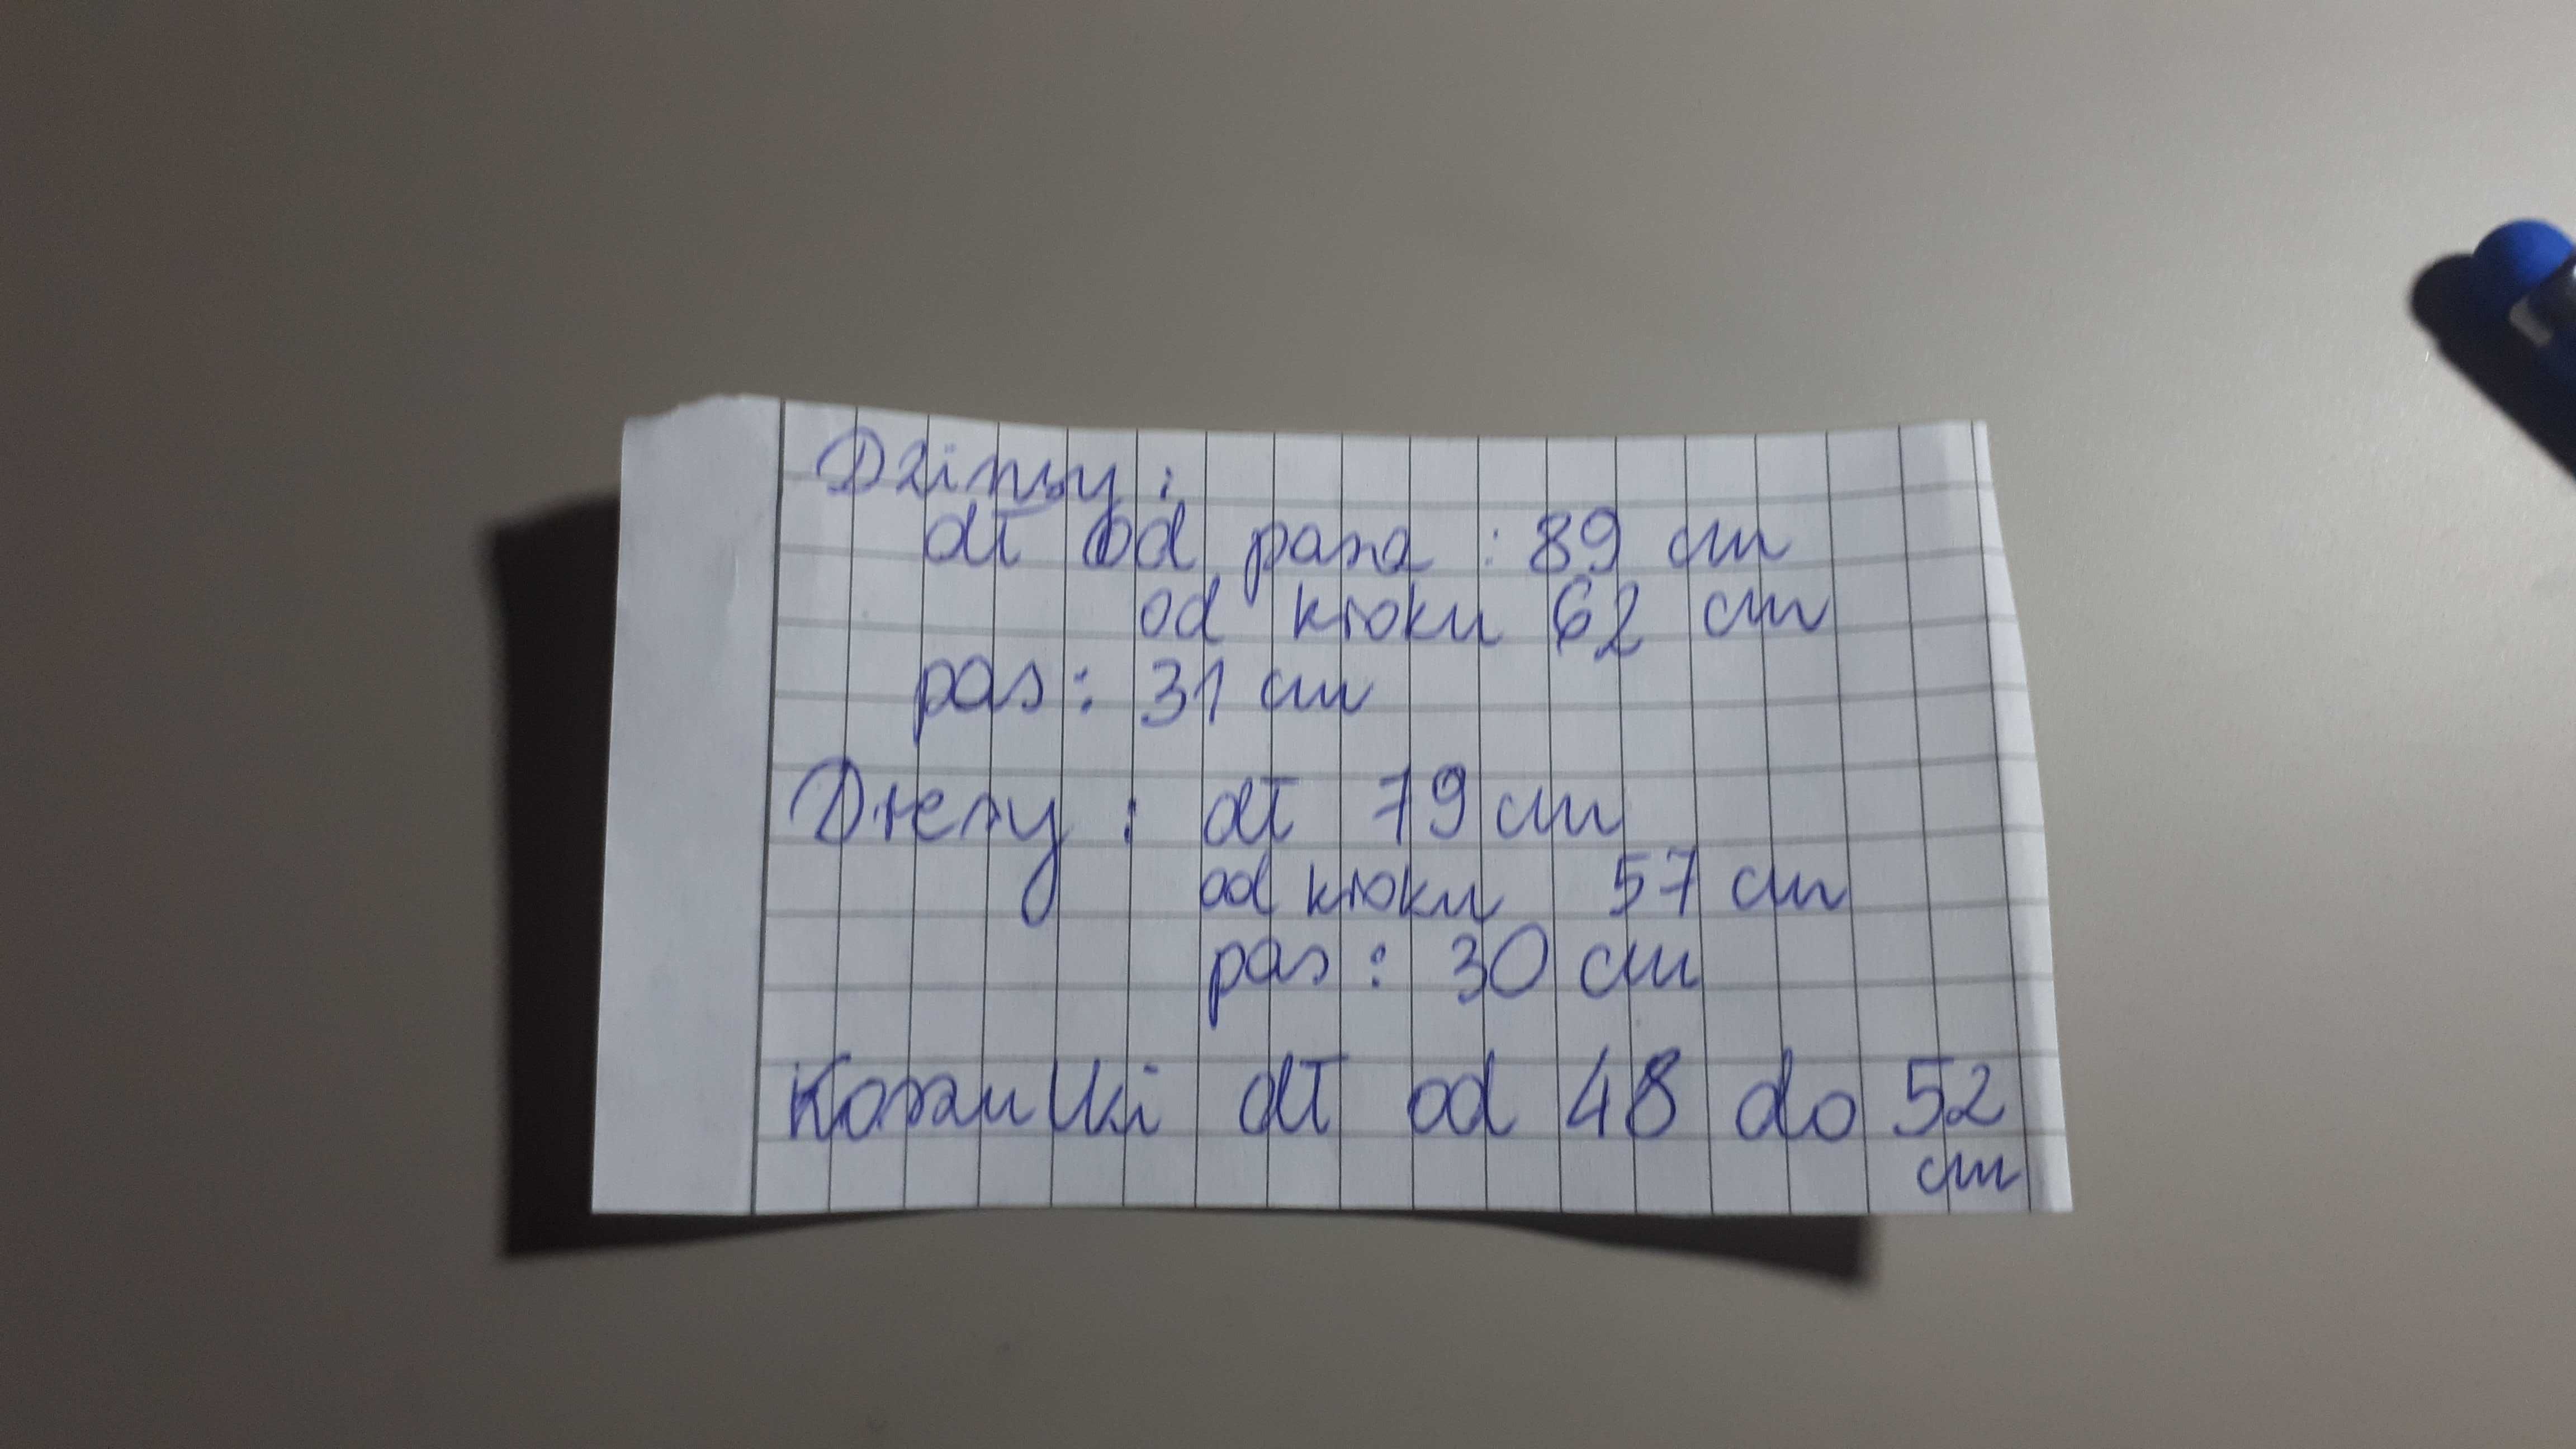 Dżinsy:
dł od pasa : 89 cm
od kroku 62 cm
pas: 31 cm
Dresy : dł 79 cm
od kroku 57 cm
pas: 30 cm
Koszulki dł od 48 do 52
cm